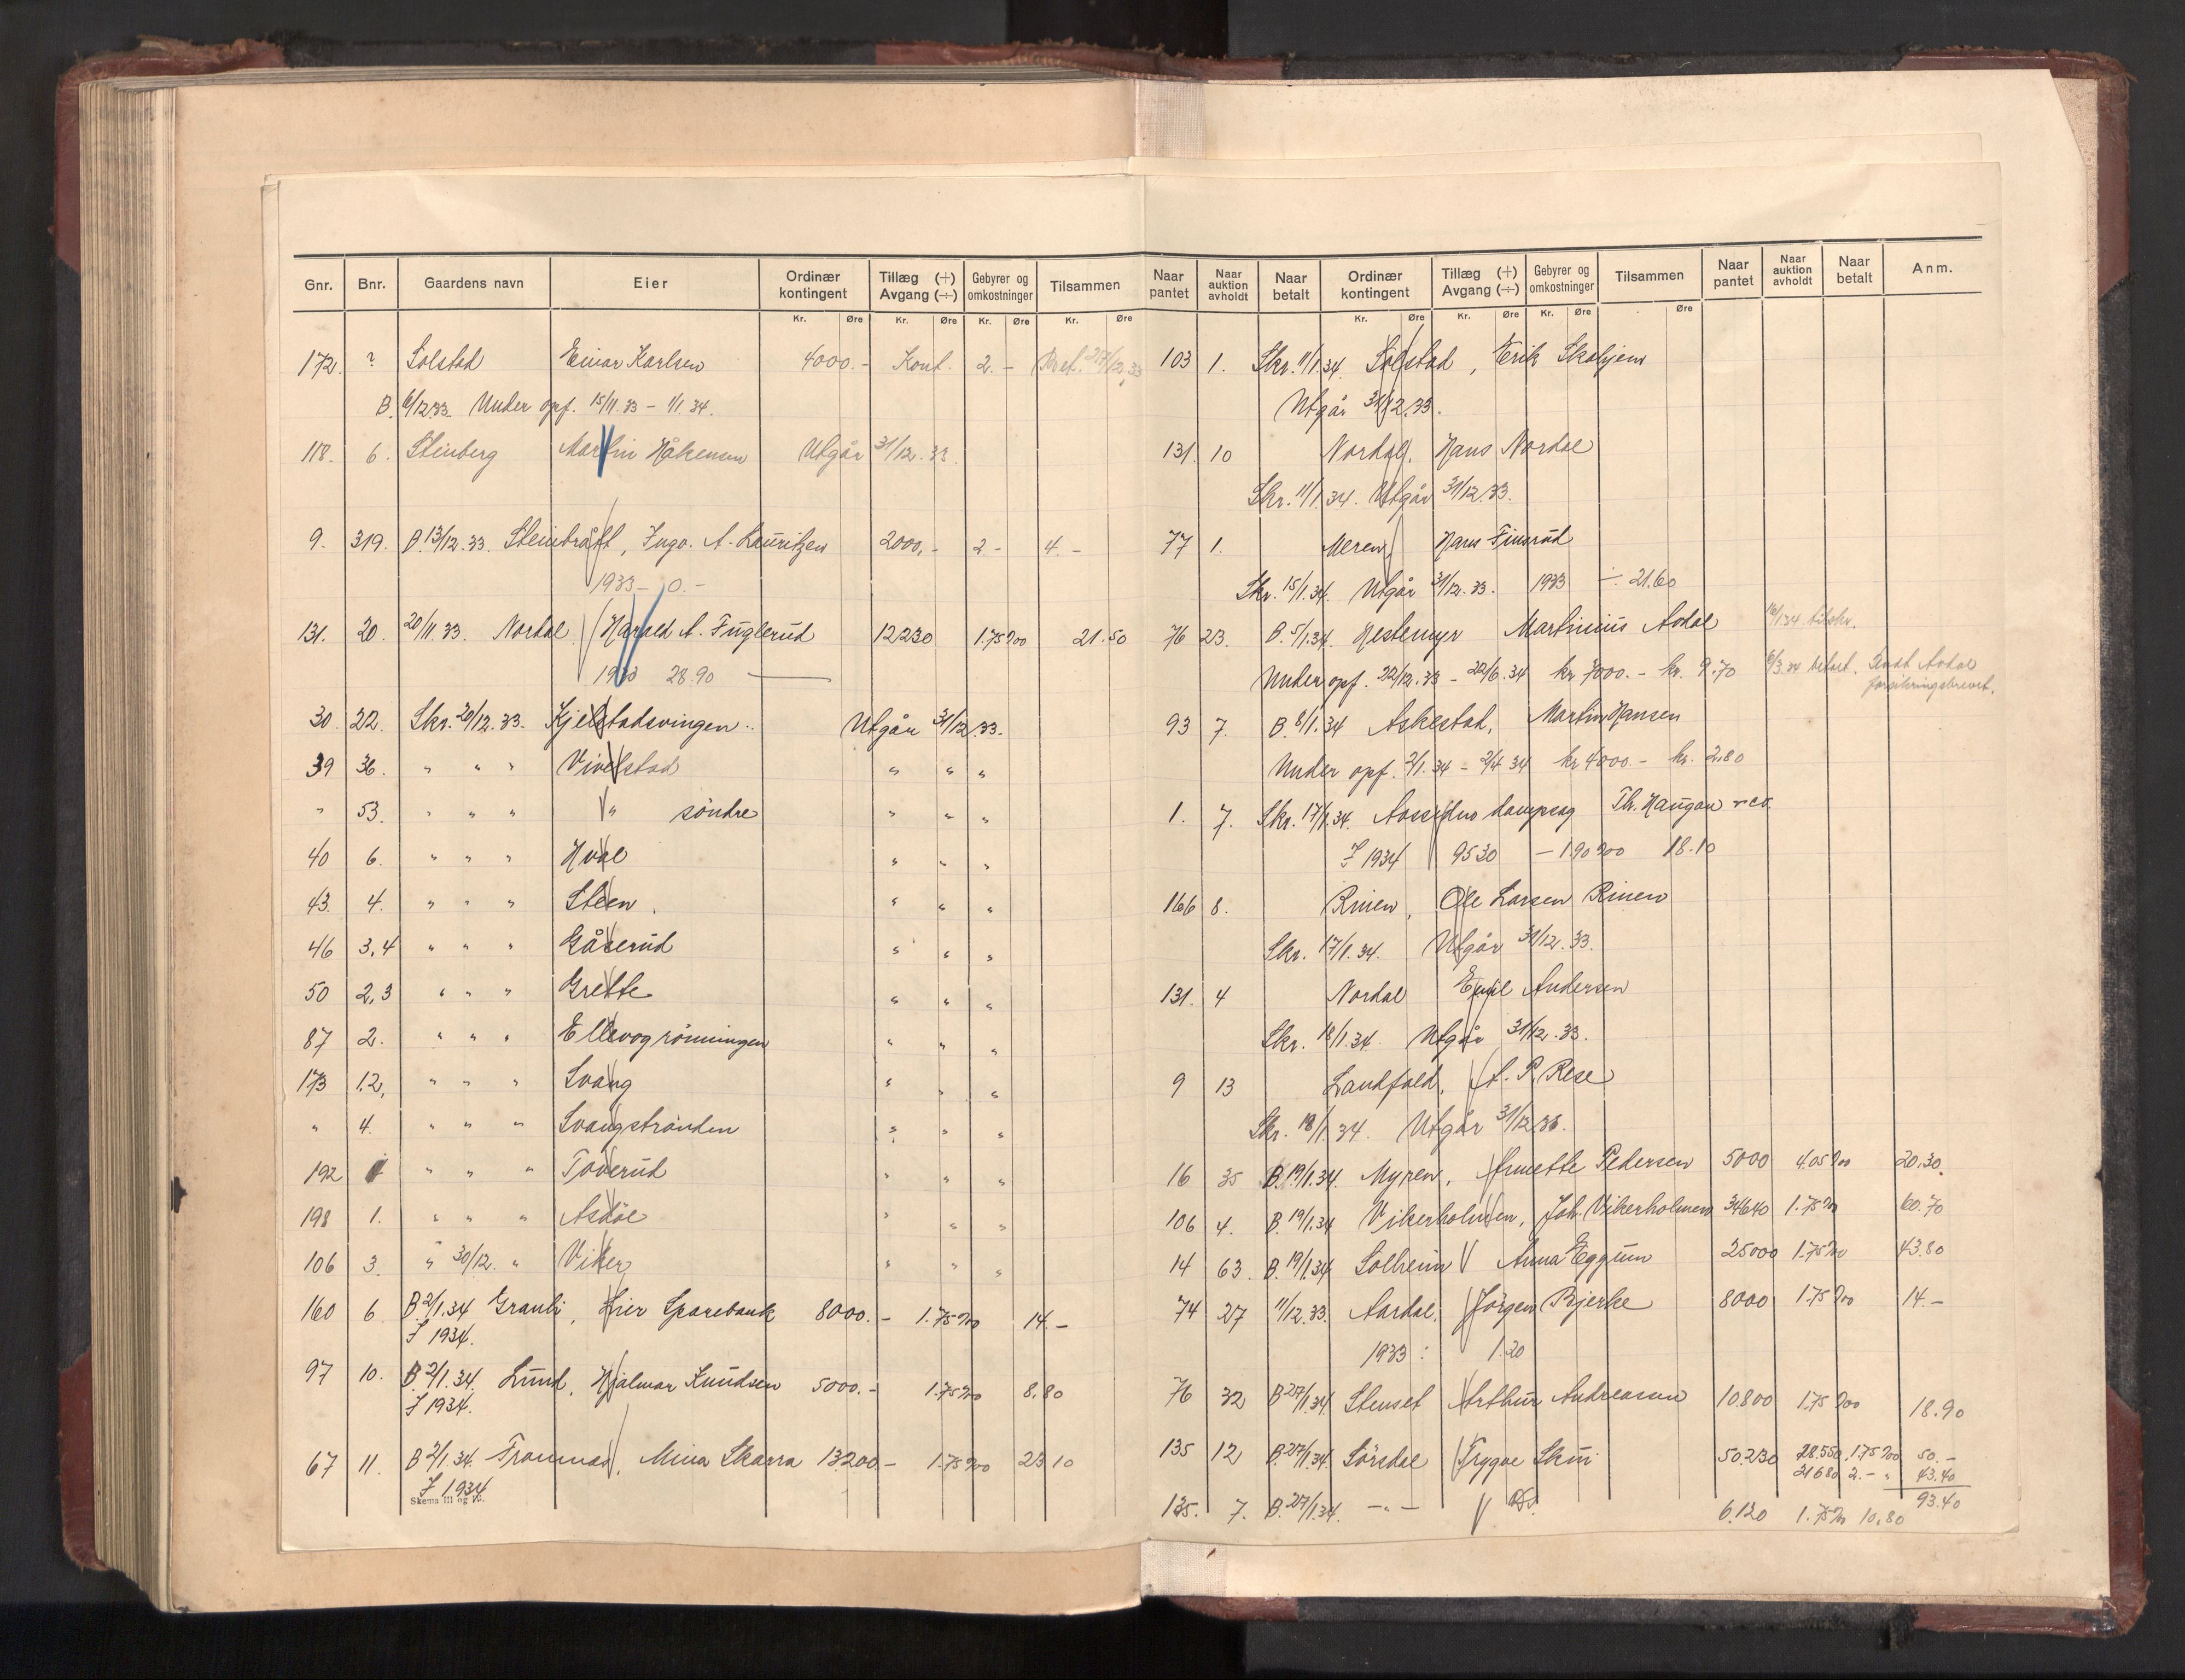 Gnr. Bnr. Gaardens navn Eier Ordinær kontingent Tillæg (+) Avgang (÷) Gebyrer og omkostninger Tilsammen
Kr. Øre Kr. Øre Kr. Øre Kr. Øre
172. ? Solstad Einar Karlsen 4000.- Kont. 2.- Bet. 27/12.33
B. 6/12 33. Under opf. 15/11.33 - 1/1.34.
118. 6. Stenberg Martin Håkensen Utgår 31/12.33.
9. 319. B. 13/12.33. Steinbrått, Ingv. A. Lauritzen 2000,- 2- 4.-
1933 - 0.-
131. 20. 20/11.33. Nordal Harald A. Fuglerud 12230 1.75 ‰ 21.50
1933 28.90
30. 22. Skr. 20/12.33. Kjelstadsvingen.. Utgår 31/12.33.
39 36. " " " Vivelstad " " "
" 53. " " " " søndre " " "
40 6. " " " Hval " " "
43. 4. " " " Steen. " " "
46 3,4 " " " Gåserud " " "
50 2,3 " " " Grette " " "
87 2. " " " Ellevogrønningen " " "
173 1.2, " " " Svang " " "
" 4. " " " Svangstranden " " "
192 " " " Toverud " " "
198 1. " " " Asdøl " " "
106 3. " 30/12. " Viker " " "
160 6 B 2/1.34 Granli, Lier Sparebank 8000.- 1.75 ‰ 14.-
F 1934.
97 10. B 2/1.34. Lund, Hjalmar Knudsen 5000.- 1.75 ‰ 8.80
F 1934.
67 11. B 2/1.34. Tromnas, Mina Skarra 13200.- 1.75 ‰ 23 10
F 1934
Skema III og IV.
Naar pantet Naar auktion avholdt Naar betalt Ordinær kontingent Tillæg (+) Avgang (÷) Gebyrer og omkostninger Tilsammen Naar pantet Naar auktion avholdt Naar betalt Anm.
Kr. Øre Kr. Øre Kr. Øre Øre
103 1. Skr. 11/1.34. Solstad, Erik Skohjem
Utgår 31/12.33.
131. 10 Nordal, Hans Nordal
Skr. 11/1.34. Utgår 31/12.33.
77 1. Meren Hans Finsrud
Skr. 15/1.34. Utgår 31/12.33. 1933 ÷ 21.60
76 23. B. 5/1.34. Hestemyr Martinius Asdal 16/1 34 tilskr.
Under opf. 22/12.33 - 22/6.34 kr 7000.- kr. 9.70 6/3.34 betalt. Sendt Asdal
forsikringsbrevet.
93 7. B. 8/1.34 Askestad, Martin Hansen
Under opf. 2/1.34 - 2/4 34 kr 4000.- kr. 2,80
1. 7. Skr. 17/1.34. Aassidens dampsag Th. Haugan & co.
F 1934 9530 - 1.90 ‰ 18.10
166 8. Rinen, Ole Larsen Rinen
Skr. 17/1.34. Utgår 31/12.33.
131. 4 Nordal Emil Andersen
Skr. 18/1.34. Utgår 31/12.33.
9 13 Landfald, A. P. Rese
Skr. 18/1.34. Utgår 31/12 33.
16 35 B. 19/1.34. Myren, Annette Pedersen 5000 4.05 ‰ 20.30.
106 4. B. 19/1.34 Vikerholmen, Joh. Vikerholmen 34640 1.75 ‰ 60.70
14 63. B. 19/1.34 Solheim Anna Eggum 25000 1.75 ‰ 43.80
74 27 11/12.33. Aardal. Jørgen Bjerke 8000 1.75 ‰ 14.-
1933: 1.20
76 32 B 27/1.34. Stenset Arthur Andreassen 10.800 1.75 ‰ 18.90
135 12 B. 27/1.34. Sørsdal Trygve Skui 50.230 28.550, 1.75 ‰ 50.-
21680 2.- " 43.40
93.40
135. 7. B. 27/1.34. -"- Ds. 6.120 1.75 ‰ 10.80